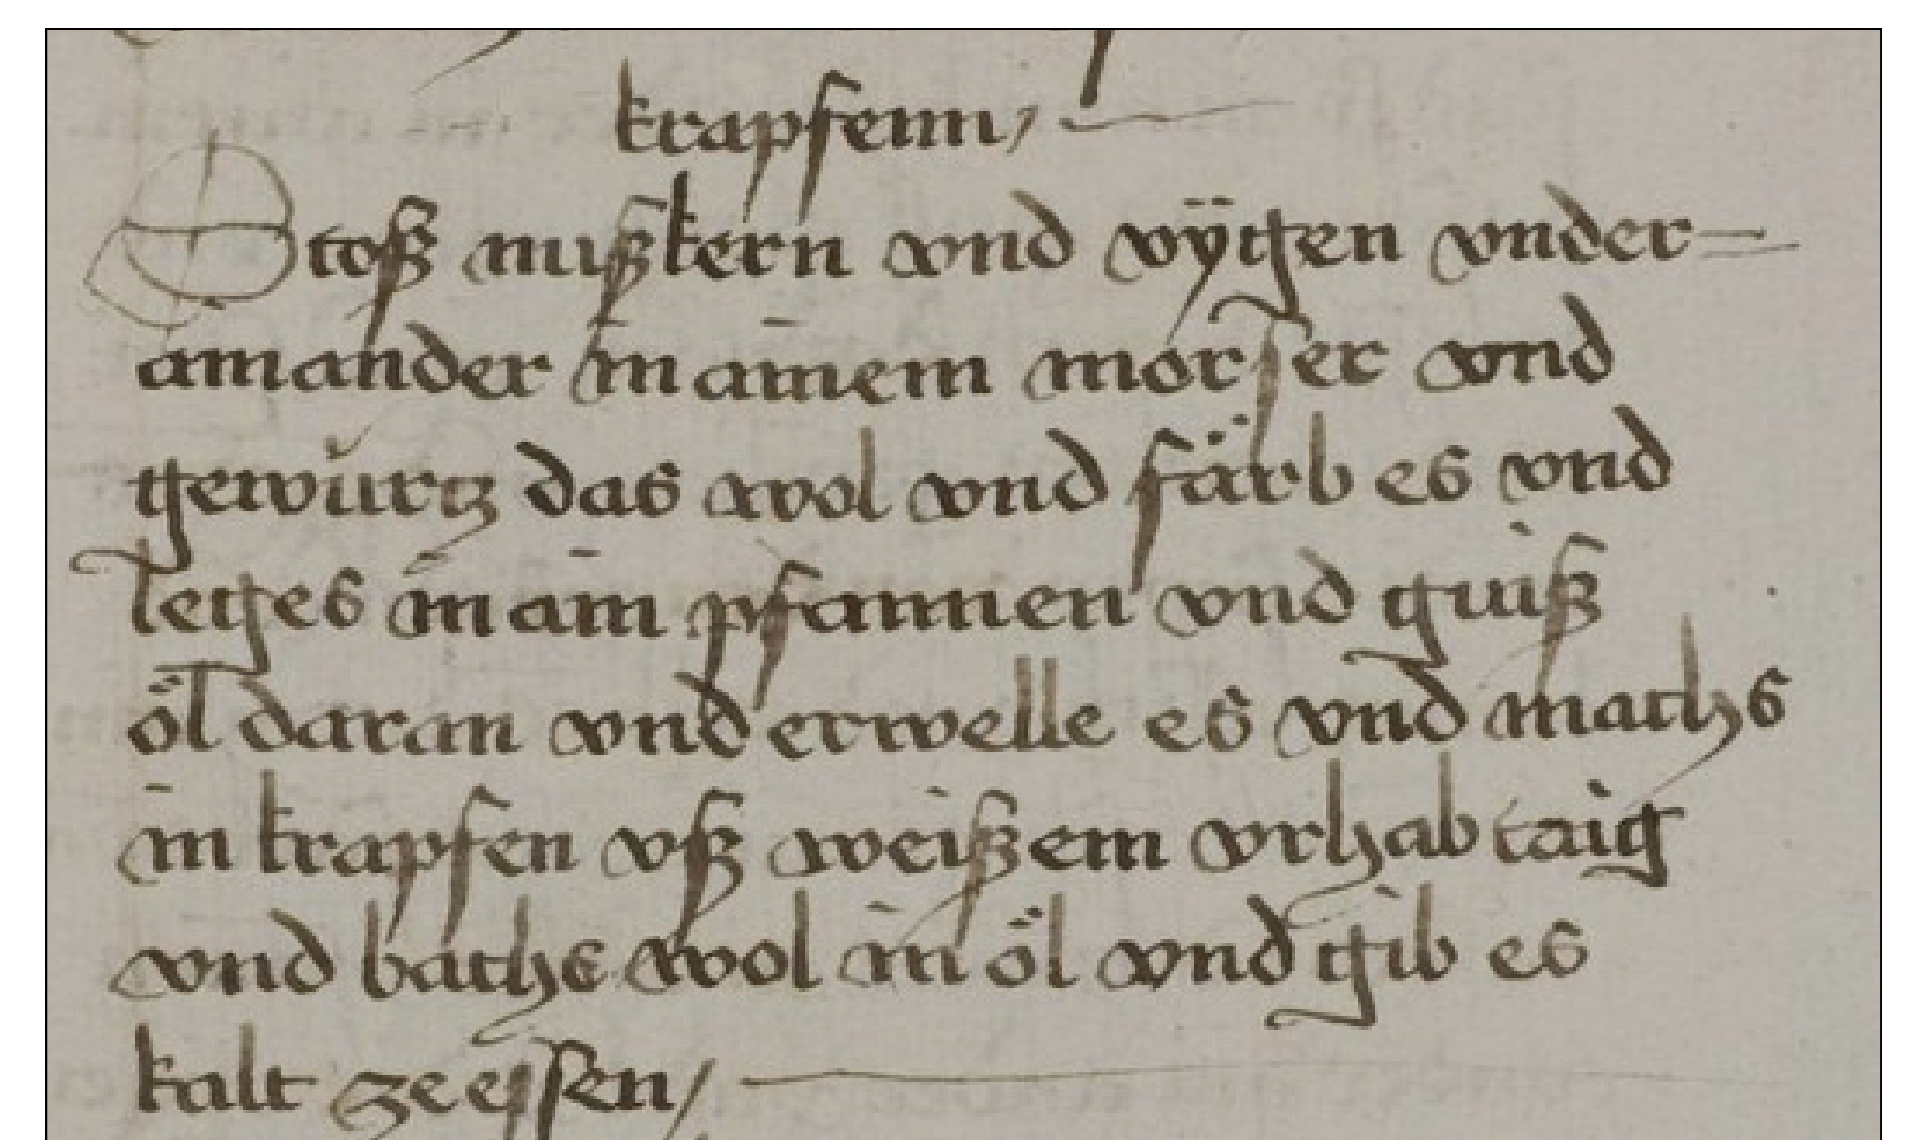 krapfenn /
Stoß nußkern vnd vÿgen vnder=
ainander in ainem mörser vnd
gewürtz das wol vnd färb es vnd
leg es in ain pfannen vnd guiß
öl daran vnd erwelle es vnd machs
in krapfen vß weißem vrhab taig
vnd bachs wol in öl vnd gib es
kalt ze essen /